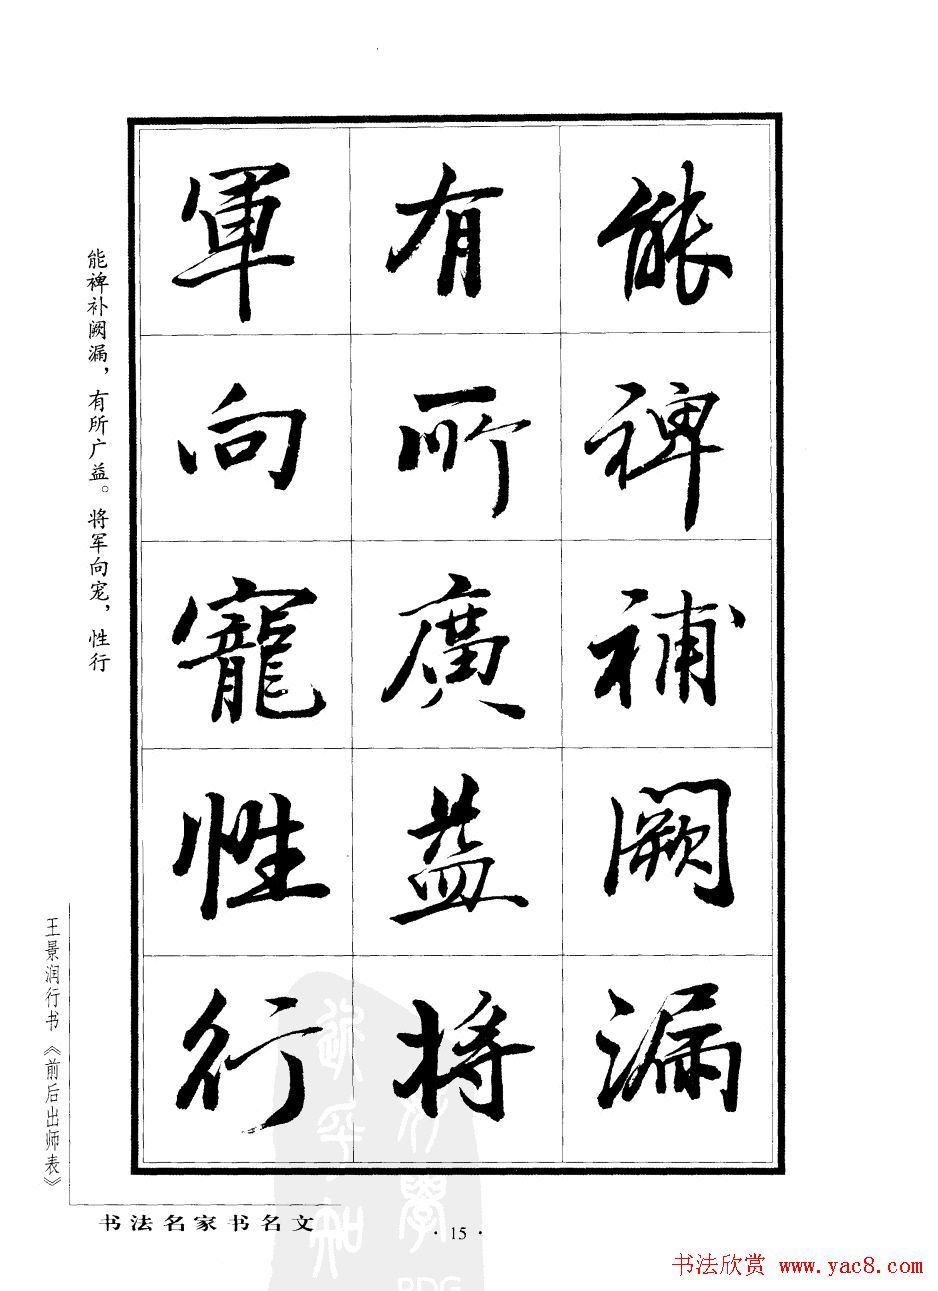 能裨補闕漏
有所廣益將
軍向寵性行
能裨补阙漏，有所广益。将军向宠，性行
王景润行书《前后出师表》
书法名家书名文
·15·
书法欣赏 www.yac8.com